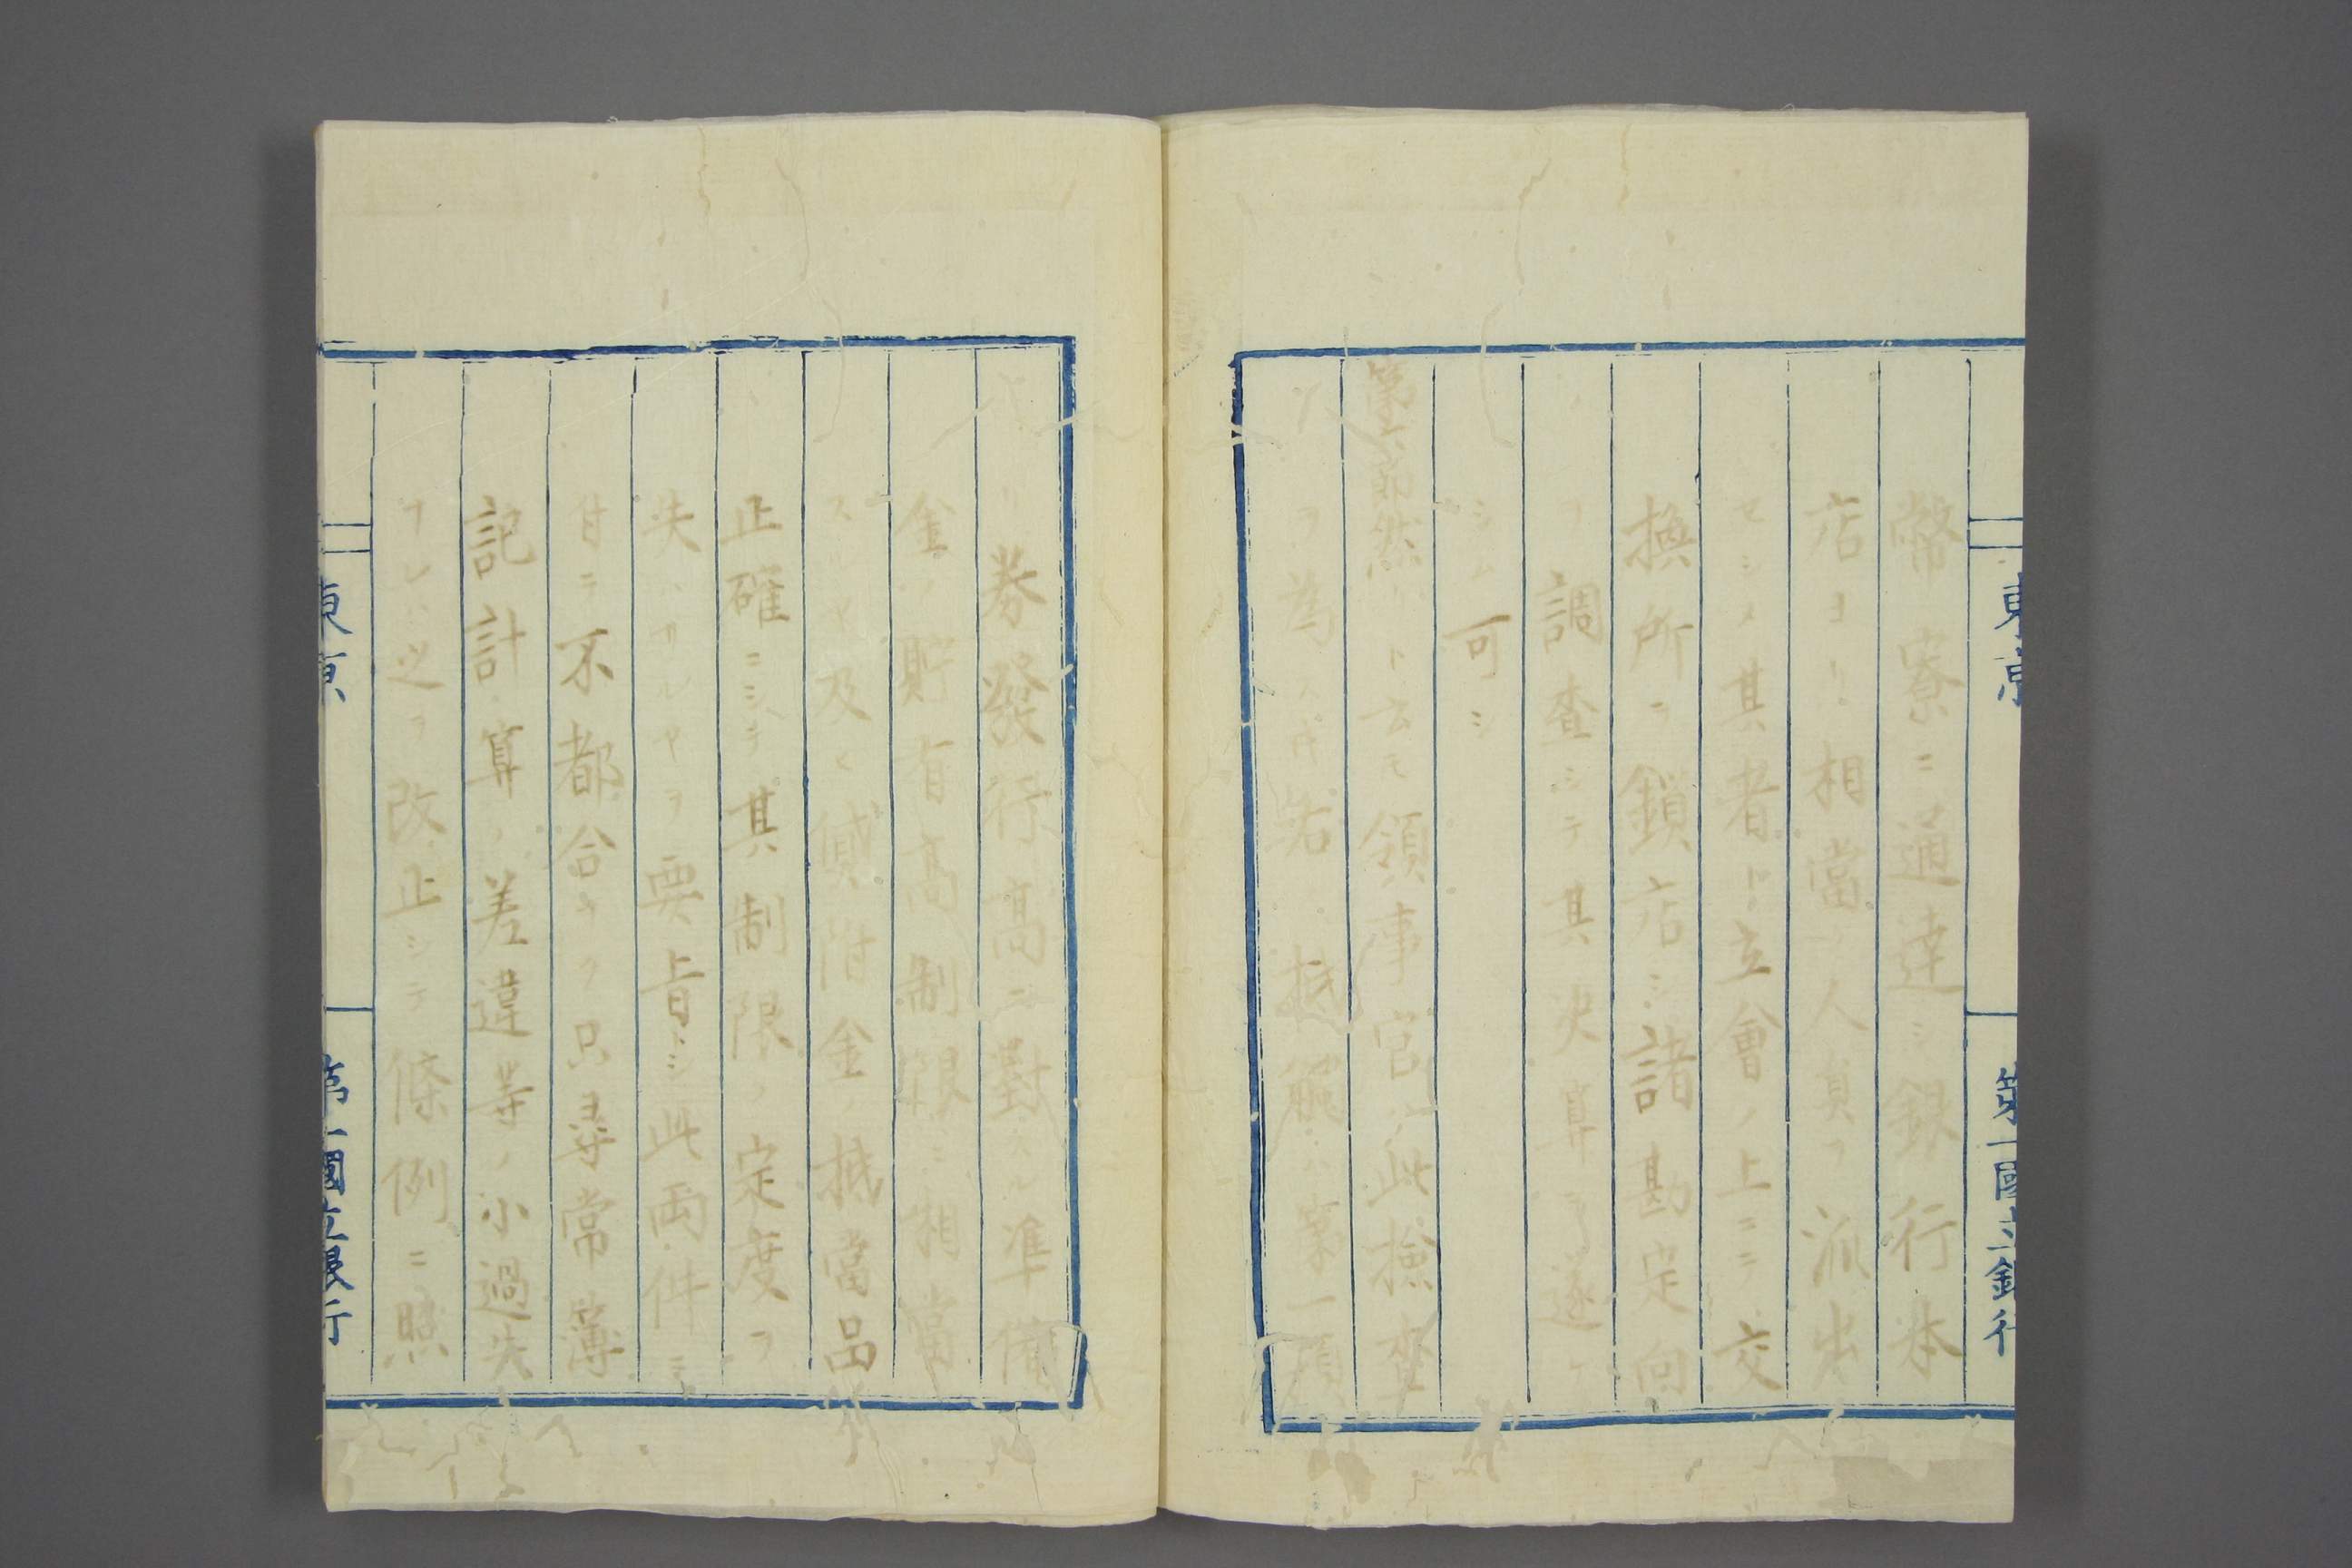 東京
第一國立銀行
幣寮ニ通達シ銀行本
店ヨリ相當ノ人員ヲ派出
セシメ其者ト立會ノ上ニテ交
換所ヲ鎖店シ諸勘定向
ヲ調査シテ其决算ヲ遂ケ
シム可シ
第六節然リト云モ領事官ノ此撿査
ヲ為スハ若シ抵觸ハ第一項
券發行高ニ對スル準備
金ノ貯有高制限ニ相當
スルヤ及ヒ貸附金ノ抵當品
正確ニシテ其制限ノ定度ヲ
失ハサルヤヲ要旨トシ此両件ニシ
甘ニ不都合ナク只尋常簿
記計算ノ差違等ノ小過失
ナレハ之ヲ改正シテ條例ニ照
東京
第一國立銀行